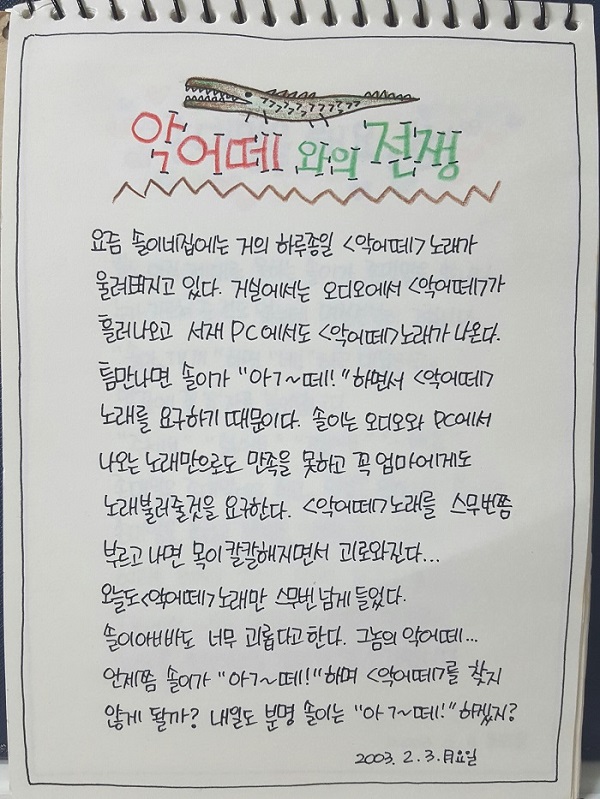 악어떼와의 전쟁
요즘 솔이네집에는 거의 하루종일 <악어떼> 노래가
울려퍼지고 있다. 거실에서는 오디오에서 <악어떼>가
흘러나오고 서재 PC에서도 <악어떼> 노래가 나온다.
틈만나면 솔이가 "아ㄱ~떼!" 하면서 <악어떼>
노래를 요구하기 때문이다. 솔이는 오디오와 PC에서
나오는 노래만으로도 만족을 못하고 꼭 엄마에게도
노래불러줄것을 요구한다. <악어떼> 노래를 스무번쯤
부르고 나면 목이 칼칼해지면서 괴로와진다...
오늘도 <악어떼> 노래만 스무번 넘게 들었다.
솔이아빠도 너무 괴롭다고 한다. 그놈의 악어떼...
언제쯤 솔이가 "아ㄱ~떼!" 하며 <악어떼>를 찾지
않게 될까? 내일도 분명 솔이는 "아ㄱ~떼!" 하겠지?
2003. 2. 3. 月요일